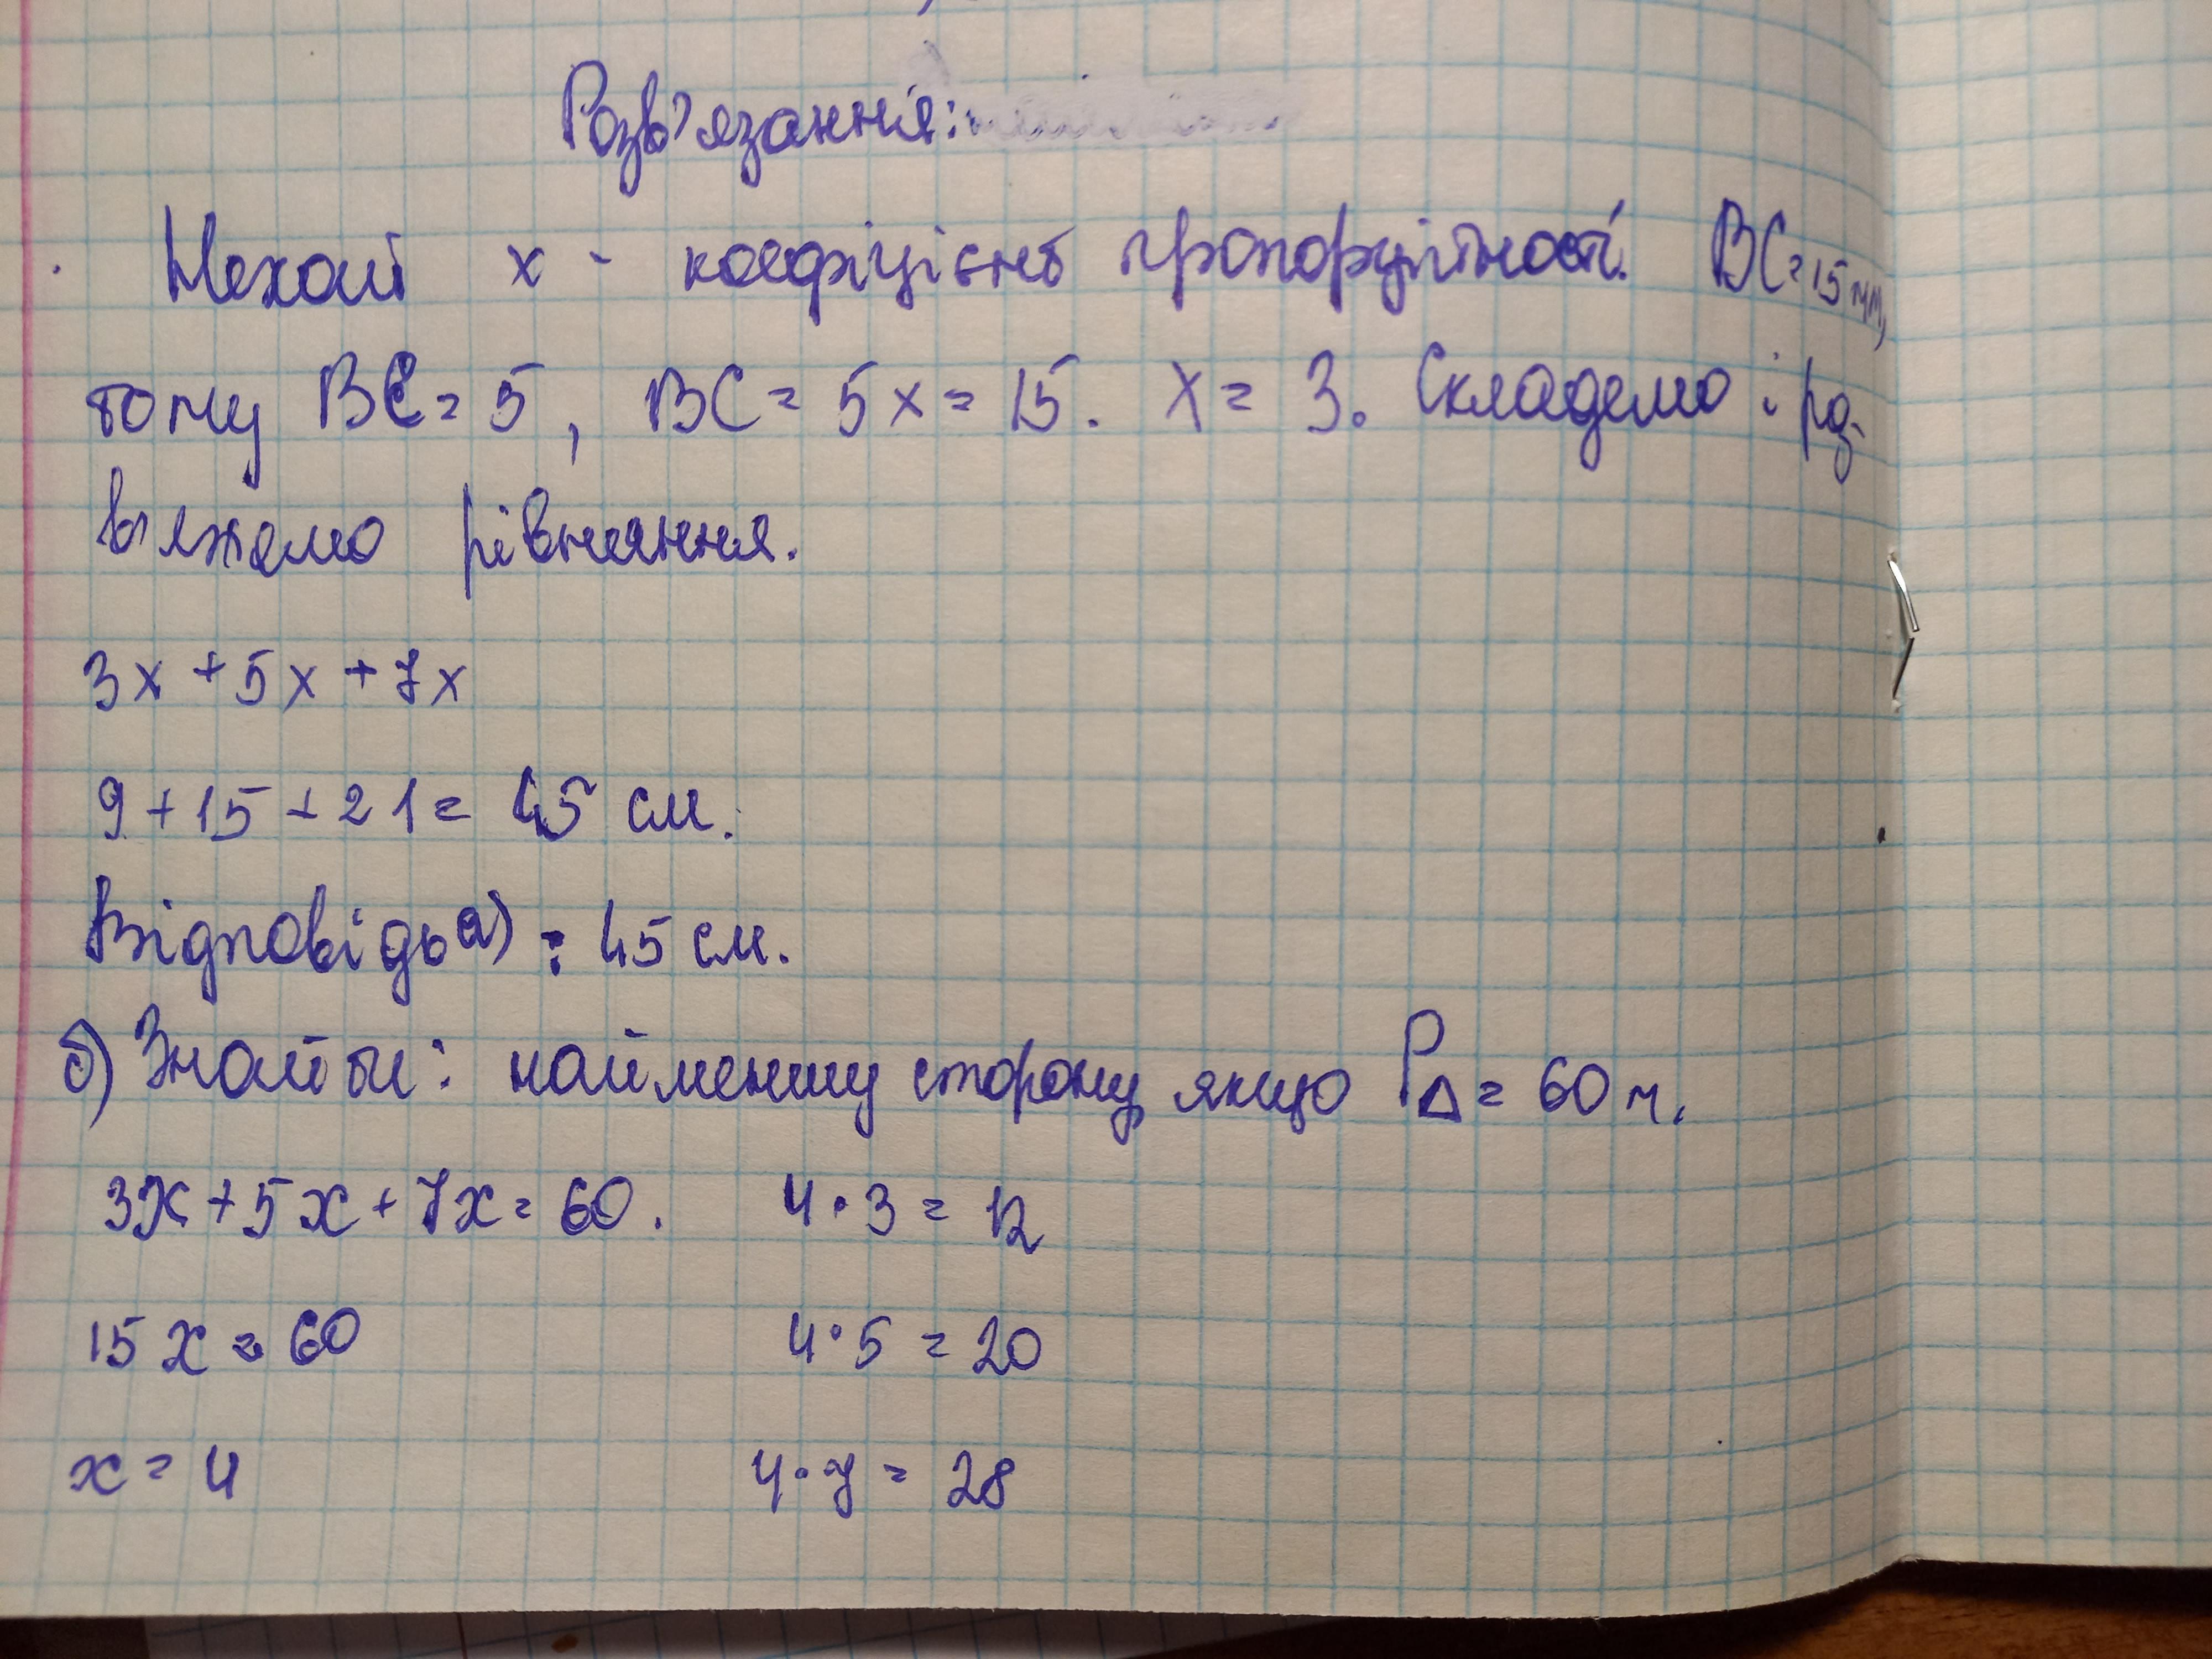 Розв'язання:
Нехай x - коефіцієнт пропорційності. BC = 15 мм,
тому BC = 5, BC = 5x = 15. X = 3. Складемо і роз-
в'яжемо рівняння.
3x + 5x + 7x
9 + 15 + 21 = 45 см.
Відповідь а) : 45 см.
б) Знайти: найменшу сторону якщо P△ = 60 м.
3x + 5x + 7x = 60. 4 · 3 = 12
15x = 60 4 · 5 = 20
x = 4 4 · 7 = 28